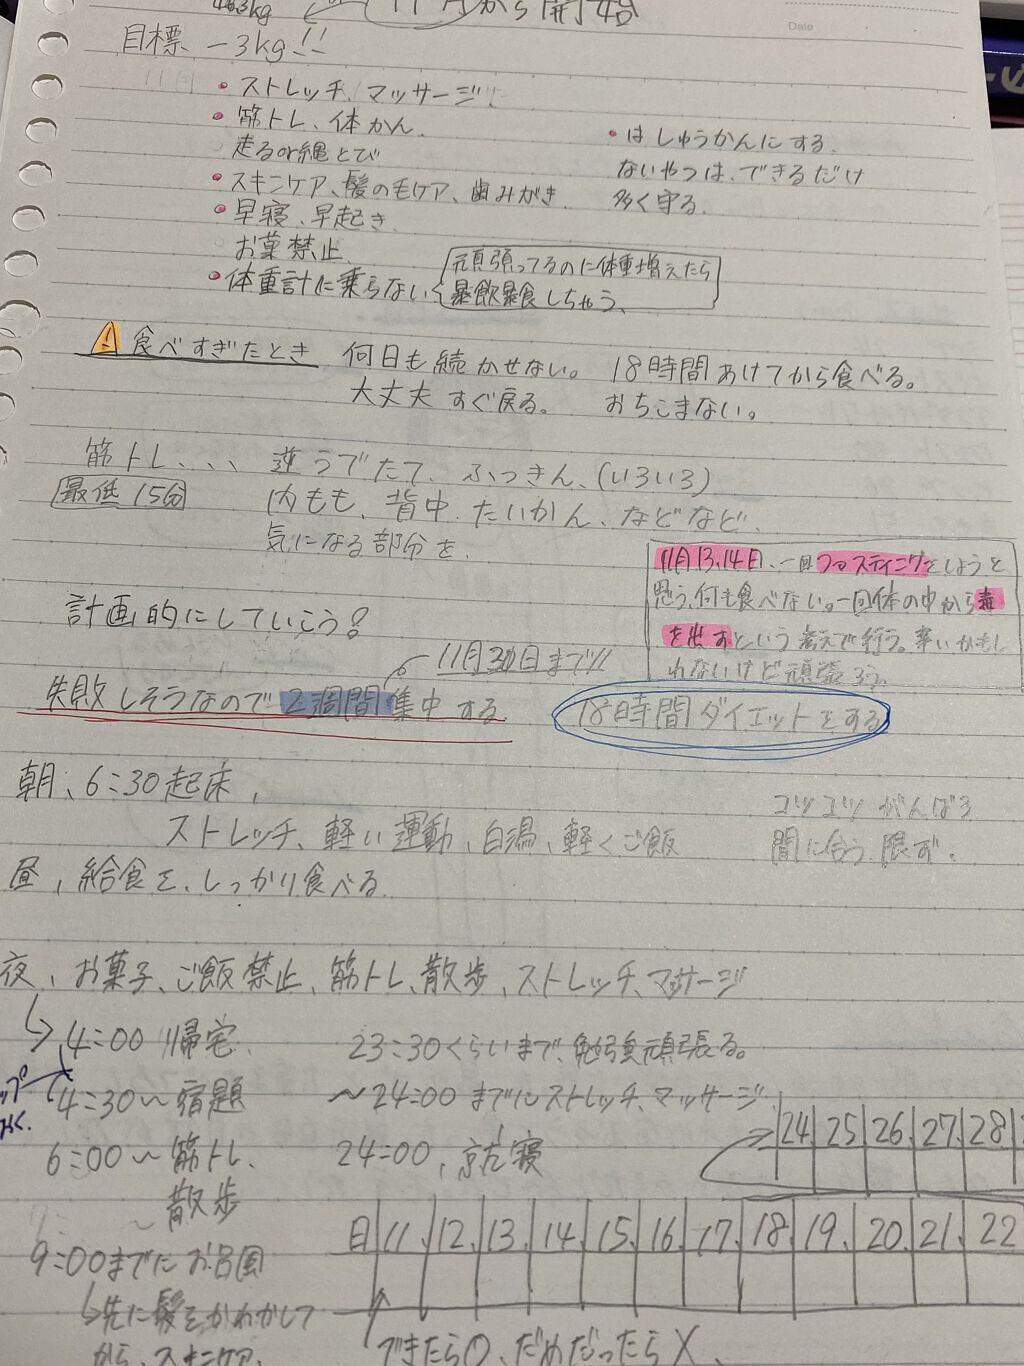 46.3kg
11月から開始
Date
目標 -3kg!!
11月
・ストレッチ、マッサージ!
・筋トレ、体かん.
走るor縄とび
・スキンケア、髪の毛ケア、歯みがき.
・早寝、早起き.
お菓禁止.
・体重計に乗らない
頑張ってるのに体重増えたら
暴飲暴食しちゃう、
・はしゅうかんにする.
ないやつは、できるだけ
多く守る.
⚠食べすぎたとき 何日も続かせない。 18時間あけてから食べる。
大丈夫 すぐ戻る。 おちこまない。
筋トレ、、、 逆うでたて、ふっきん、(いろいろ)
最低15分 内もも、背中、たいかん、などなど、
気になる部分を、
11月13.14日、一回ファスティングをしようと
思う、何も食べない。一回体の中から毒
を出すという考えで行う。辛いかもし
れないけど頑張ろう。
計画的にしていこう?
11月30日まで!!
失敗しそうなので2週間集中する
18時間ダイエットをする
朝、6:30起床,
ストレッチ、軽い運動、白湯、軽くご飯
コツコツがんばろ
間に合う、限ず.
昼, 給食を、しっかり食べる.
夜、お菓子、ご飯禁止、筋トレ、散歩、ストレッチ、マッサージ
4:00 帰宅.
4:30~宿題
6:00~筋トレ、
~散歩
9:00までにお風
↳先に髪をかわかして
から、スキンケア.
23:30くらいまで、勉強頑張る。
~24:00までにストレッチ、マッサージ
24:00, 就寝
24. 25 26. 27. 28
日 11. 12. 13. 14. 15. 16. 17. 18. 19. 20. 21. 22
できたら○、だめだったら✕、